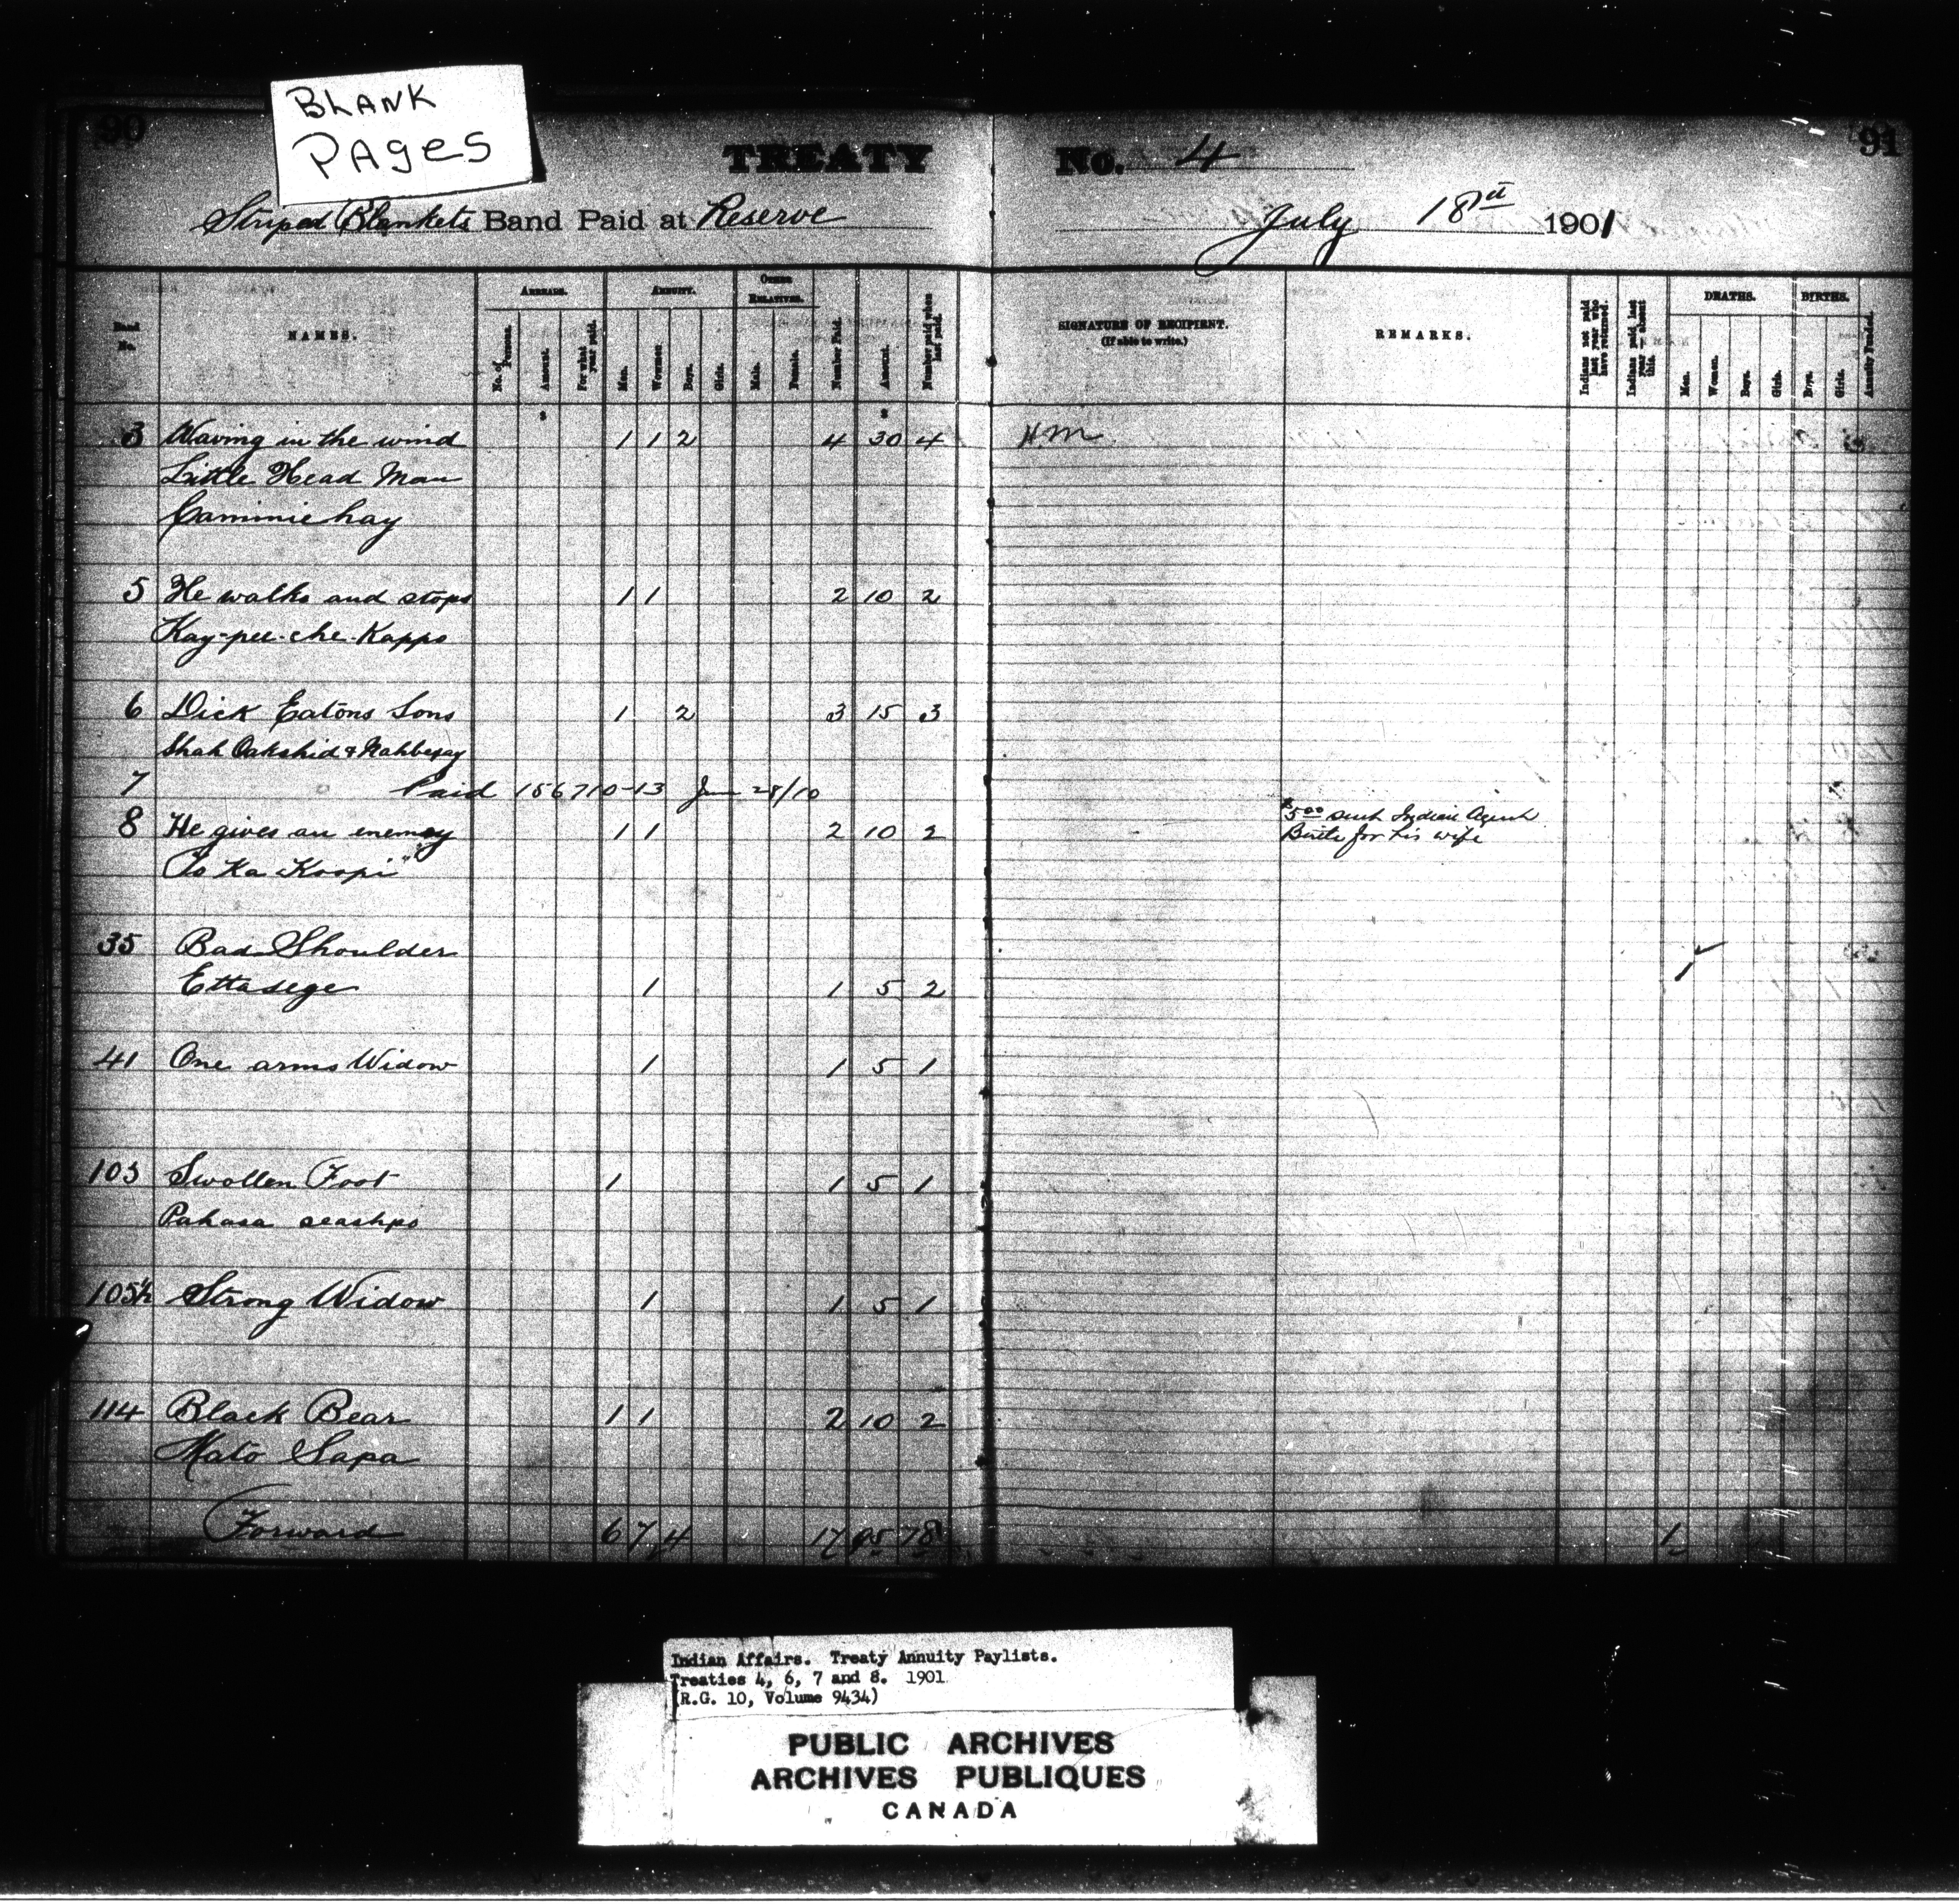 BLANK
PAGES
90
91
TREATY No. 4
Striped Blankets Band Paid at Reserve July 18th 1901
Band No.
NAMES.
ARREARS.
No. of Persons.
Amount.
For what year paid.
ANNUITY.
Men.
Women.
Boys.
Girls.
OTHER RELATIVES.
Male.
Female.
Number Paid.
Amount.
Number paid when last paid.
SIGNATURE OF RECIPIENT.
(If able to write.)
REMARKS.
Indians not paid last year who have returned.
Indians paid last year absent this.
DEATHS.
Men.
Women.
Boys.
Girls.
BIRTHS.
Boys.
Girls.
Annuity Funded.
$ $
3 Waving in the wind 1 1 2 4 30 4 HM
Little Head Man
Camminehay
5 He walks and stops 1 1 2 10 2
Kay-pee-che-Kappo
6 Dick Eatons Sons 1 2 3 15 3
Shah Oakshid & Nahbexay
7 Paid 156710-13 28/10
8 He gives an enemy 1 1 2 10 2 $5.00 sent Indian Agent
Birtle for his wife
To Ka Koopi"
35 Bad Shoulder
Ettasege 1 1 5 2 1
41 One arms Widow 1 1 5 1
103 Swollen Foot 1 1 5 1
Pahasa seashpo
105½ Strong Widow 1 1 5 1
114 Black Bear 1 1 2 10 2
Mato Sapa
Forward 6 7 4 17 95 18 1
Indian Affairs. Treaty Annuity Paylists.
Treaties 4, 6, 7 and 8. 1901
(R.G. 10, Volume 9434)
PUBLIC ARCHIVES
ARCHIVES PUBLIQUES
CANADA